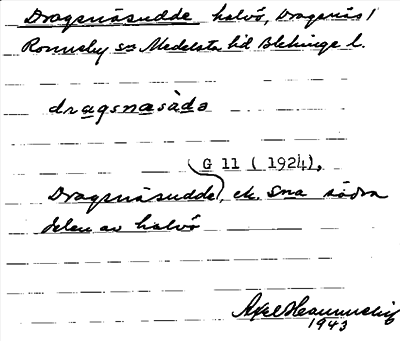 Dragsnäsudde halvö, Dragsnäs 1
Ronneby sn Medelsta hd Blekinge l.
dragsnæsùdə
G 11 (1924),
Dragsnäsudde, ek. Sna södra
delen av halvö
Axel
1943